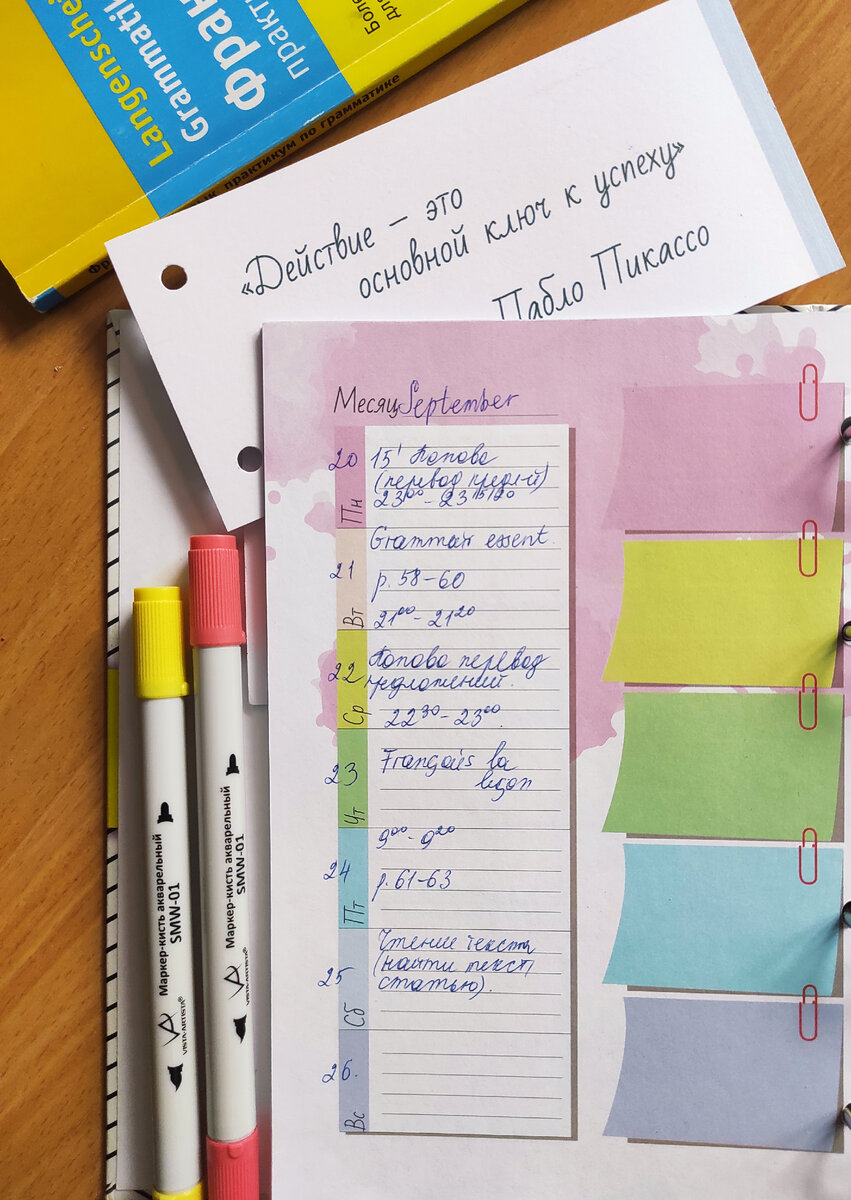 Langenschei
Grammatik
Фран
практи
Боле
для
практикум по грамматике
«Действие – это
основной ключ к успеху»
Пабло Пикассо
Месяц September
20 15' Попова
(перевод предл-й)
Пн 23⁰⁰ - 23¹⁵/²⁰
Grammair essent.
21 p. 58-60
Вт 21⁰⁰ - 21²⁰
22 Попова перевод
предложений.
Ср 22³⁰ - 23⁰⁰.
23 Français la
leçon
Чт
9⁰⁰ - 9²⁰
24 p. 61-63
Пт
Чтение текста
(найти текст,
25 статью).
Сб
26.
Вс
Маркер-кисть акварельный
SMW-01
VISTA-ARTISTA®
Маркер-кисть акварельный
SMW-01
VISTA-ARTISTA®